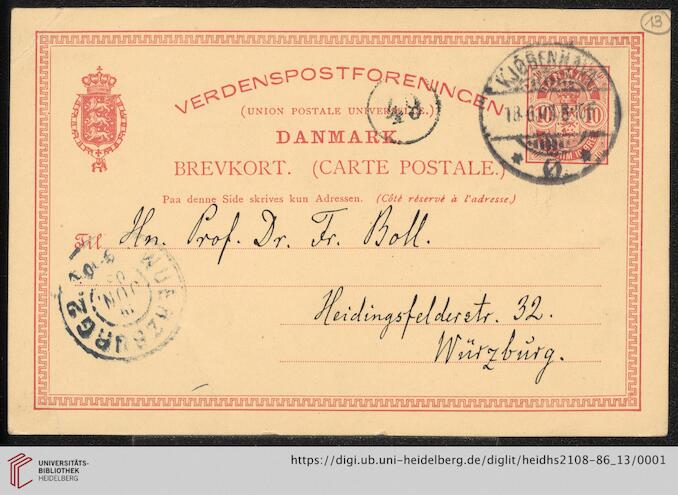 13
VERDENSPOSTFORENINGEN
(UNION POSTALE UNIVERSELLE.)
DANMARK
BREVKORT. (CARTE POSTALE.)
Paa denne Side skrives kun Adressen. (Côté réservé à l'adresse.)
KJØBENHAVN
10
Til Hn. Prof. Dr. Fr. Boll.
WUERZBURG 2.
JUN
Heidingsfelderstr. 32.
Würzburg.
UNIVERSITÄTS-
BIBLIOTHEK
HEIDELBERG
https://digi.ub.uni-heidelberg.de/diglit/heidhs2108-86_13/0001